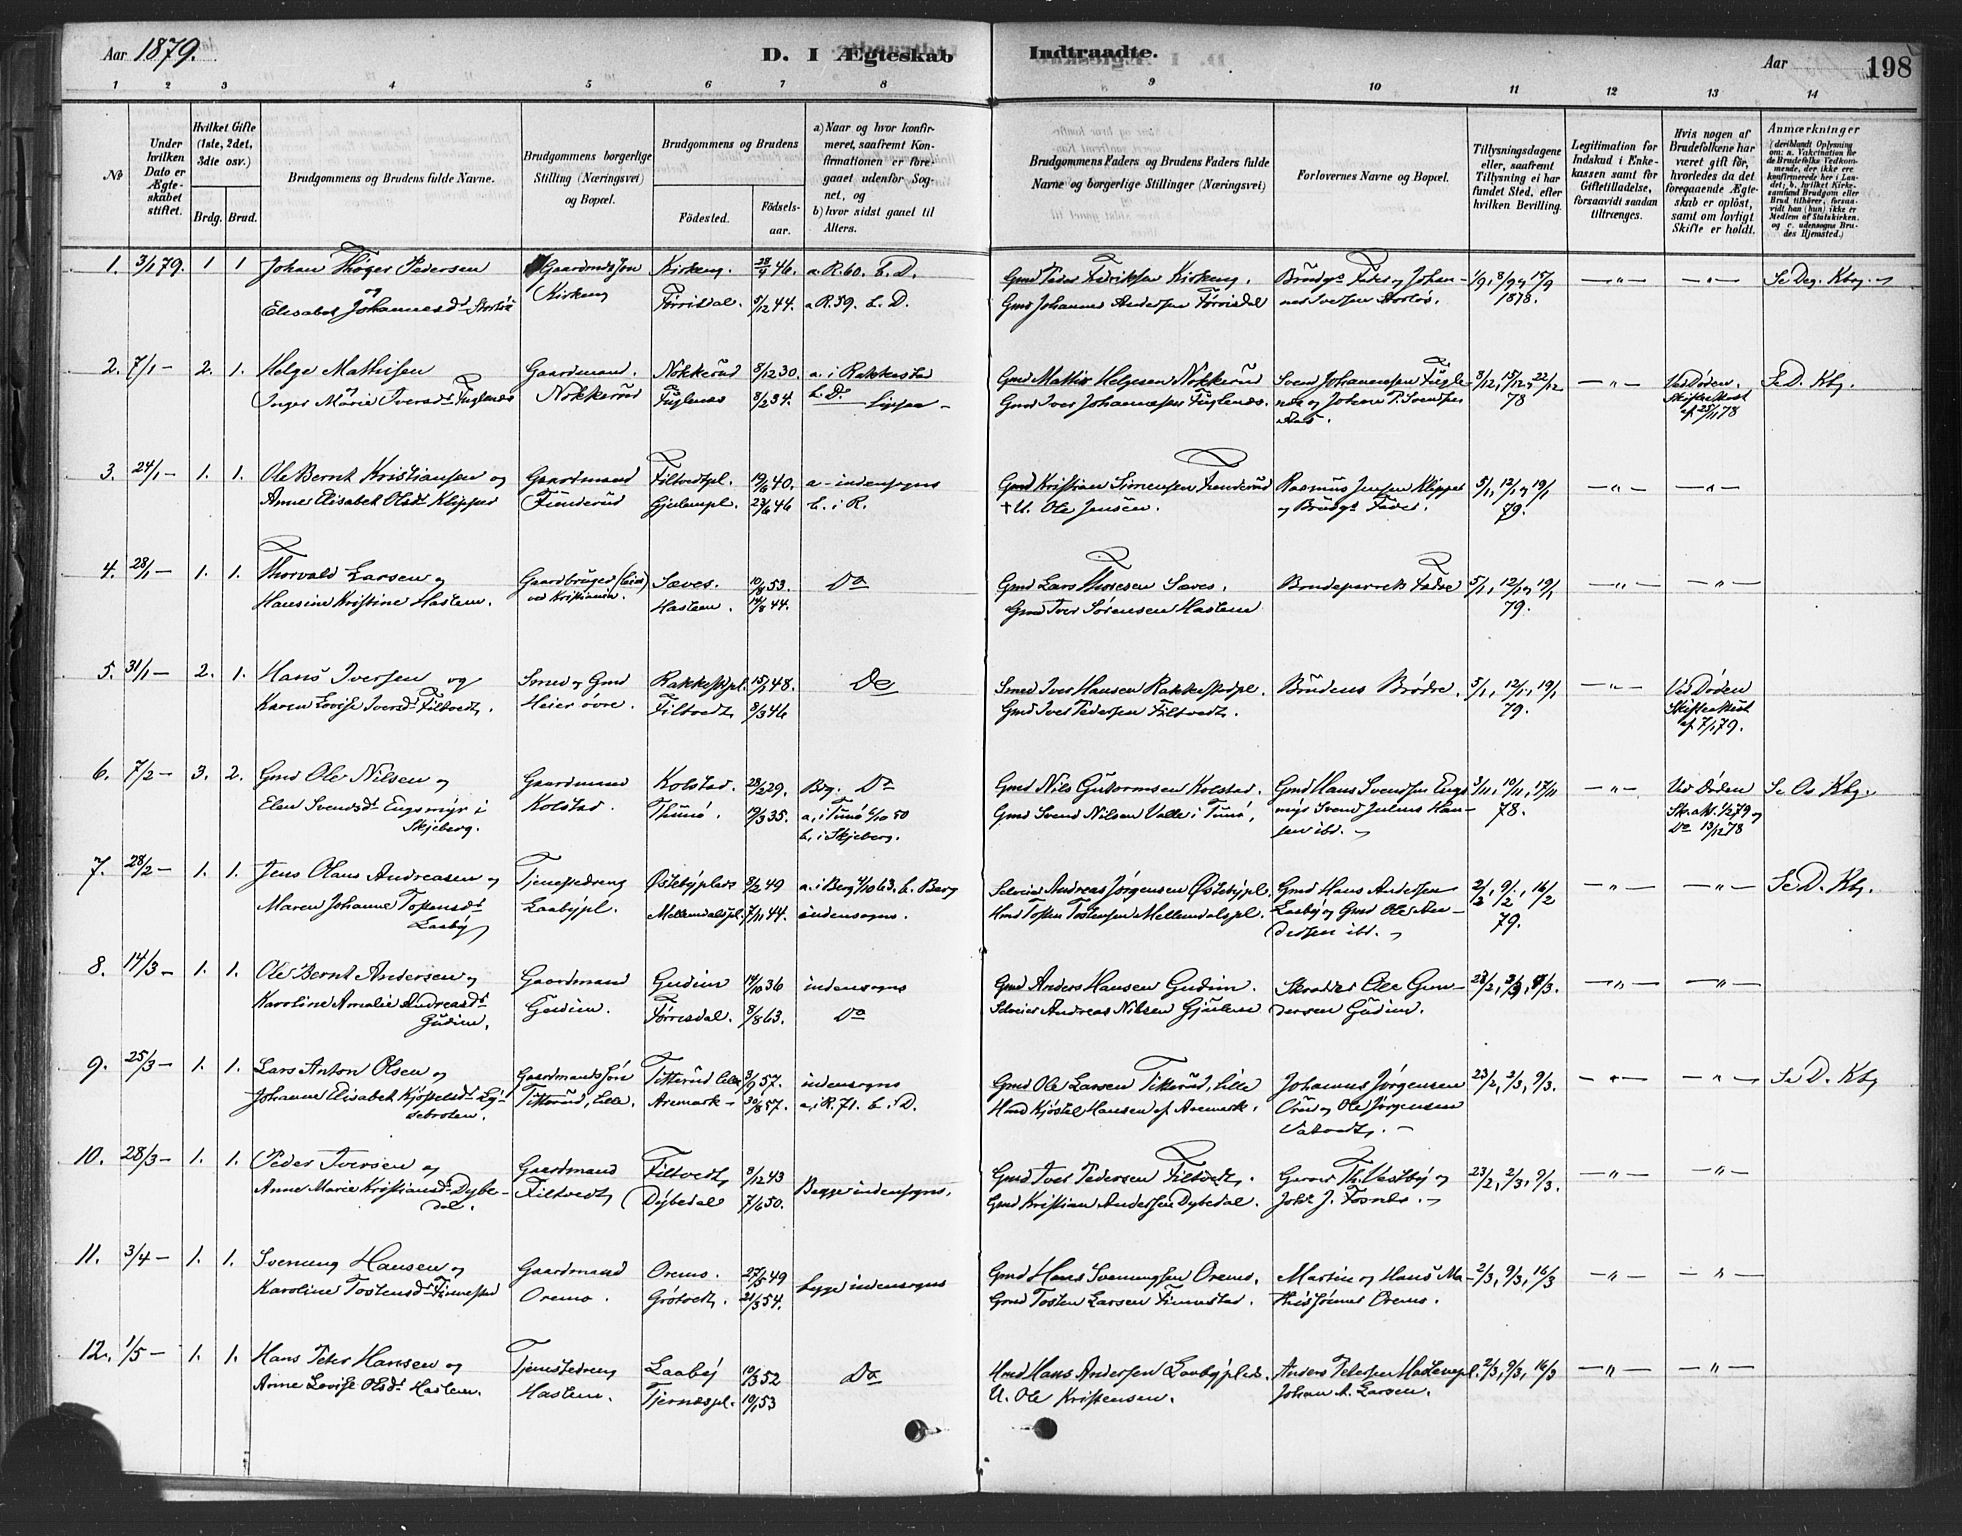 Aar 1879.
D. I Ægteskab Indtraadte.
Aar 198
1 2 3 4 5 6 7 8 9 10 11 12 13 14
No
Under hvilken Dato er Ægteskabet stiftet.
Hvilket Gifte (1ste, 2det, 3die osv.)
Brdg. Brud.
Brudgommens og Brudens fulde Navne.
Brudgommens borgerlige Stilling (Næringsvei) og Bopæl.
Brudgommens og Brudens
Fødested.
Fødselsaar.
a) Naar og hvor konfirmeret, saafremt Konfirmationen er foregaaet udenfor Sognet, og
b) hvor sidst gaaet til Alters.
Brudgommens Faders og Brudens Faders fulde Navne og borgerlige Stillinger (Næringsvei)
Forlovernes Navne og Bopæl.
Tillysningsdagene eller, saafremt Tillysning ei har fundet Sted, efter hvilken Bevilling.
Legitimation for Indskud i Enkekassen samt for Giftetilladelse, forsaavidt saadan tiltrænges.
Hvis nogen af Brudefolkene har været gift før, hvorledes da det foregaaende Ægteskab er opløst, samt om lovligt Skifte er holdt.
Anmærkninger
1. 3/1 79. 1 1 Johan Thøger Pedersen Gaardmdssøn Kirkeng. 28/9 46. a. R. 60. b. D. Gmd Peder Fredriksen Kirkeng. Brudgs Fader og Johan- 1/9, 8/9 15/9 —"— —"— Se Deg. Kbg.
og Elisabet Johannesdr Stortøi Kirkeng Førrisdal. 5/12 44. a R. 59. b. D. Gmd Johannes Andersen Førrisdal nes Iversen 1878.
2. 7/1 — 2. 1. Helge Mathisen Gaardmand. Nokkerud 8/12 30. a. i Rakkestad Gmd Mathis Helgesen Nokkerud Svend Johannessen Fugle- 8/12, 15/12, 22/12 —"— Ved Døden. Se D. Kbg.
og Inger Marie Iversdr Fuglenæs Nokkerud Fuglenæs 8/2 34. b. Do Gmd Iver Johannessen Fuglenæs. næs og Johan P. Svendsen 78 Skifteattest af 25/11 78
3. 24/1 — 1. 1. Ole Bernt Kristiansen og Gaardmand Filtvedtpl. 19/6 40. a - indensogns Gmd Kristian Simensen Funderud Rasmus Jensen Klippen 5/1, 12/1, 19/1 —"— —"—
Anne Elisabet Olsdr Klippen Funderud Gjulempl. 23/6 46 b. i R. † U. Ole Jensen. og Brudgs Fader. 79.
4. 28/1 — 1. 1. Thorvald Larsen og Gaardbruger Sæves. 10/8 53. Do Gmd Lars Thoresen Sæves. Brudeparrets Fædre 5/1, 12/1, 19/1 —"— —"—
Hansine Kristine Haslem. ved Kristiania. Haslem. 14/8 44. Gmd Iver Sørensen Haslem 79.
5. 31/1 — 2. 1. Hans Iversen og Smed og Gmd Rakkestpl. 15/1 48. Do Smed Iver Hansen Rakkestadpl. Brudens Brødre. 5/1, 12/1, 19/1 —"— Ved Døden
Karen Lovise Iversdr Filtvedt. Heier øvre. Filtvedt 8/3 46 Gmd Iver Pedersen Filtvedt. 79. Skifteattest af 7/1 79.
6. 7/2 — 3. 2. Gmd Ole Nilsen og Gaardmand Kolstad. 28/2 29. Bg. Do Gmd Nils Guttormsen Kolstad. Gmd Hans Svendsen Engs- 3/11, 10/11, 17/11 —"— Ved Døden Se Os Kbg.
Elen Svendsdr Engsmyr i Kolstad. Thunø. 19/3 35. a. i Tunø 6/10 50 Gmd Svend Nilsen Valle i Tunø. myr Svend Julius Han- 78. Sk. att. 1/2 79 og
Skjeberg. b. i Skjeberg. sen ibd. Do 13/12 78
7. 28/2 — 1. 1. Jens Olaus Andreasen og Tjenestedreng Østebypladsen 8/2 49 a. i Berg 4/10 63. b. Berg Selveier Andreas Jørgensen Østebypl. Gmd Hans Andersen 2/2, 9/2, 16/2 —"— —"— Se D. Kbg.
Maren Johanne Tostensdr Laabypl. Mellemdalspl. 7/11 44. indensogns. Hmd Tosten Tostensen Mellemdalspl. Laaby og Gmd Ole An- 79.
Laaby dersen ibd.
8. 14/3 — 1. 1. Ole Bernt Andersen og Gaardmand Gudim 14/10 36 indensogns Gmd Anders Hansen Gudim. Skrædder Ole Gun- 23/2, 2/3, 9/3. —"— —"—
Karoline Amalie Andreasdr Gudim. Førrisdal. 8/8 63. Do Selveier Andreas Nilsen Gjulem dersen Gudim.
Gudim.
9. 25/3 — 1. 1. Lars Anton Olsen og Gaardmandssøn Titterud lille 3/9 57. indensogns Gmd Ole Larsen Titterud, lille Johannes Jørgensen 23/2, 2/3, 9/3. —"— —"— Se D. Kbg
Johanne Elisabet Kjøstelsdr Ly- Titterud, lille. Aremark — 30/8 57. a. i R. 71. b. i D. Hmd Kjøstel Hansen af Aremark. og Ole Jørgensen
sebroten. Vatvedt.
10. 28/3 — 1. 1. Peder Iversen og Gaardmand Filtvedt 8/12 43 Begge indensogns. Gmd Iver Pedersen Filtvedt. Th. Vestby og 23/2, 2/3, 9/3. —"— —"—
Anne Marie Kristiansdr Dybe- Filtvedt Dybedal 7/6 50. Gmd Kristian Andersen Dybedal. Johs J. Fosnæs.
dal.
11. 3/4 — 1. 1. Svenung Hansen og Gaardmand Oremo. 27/5 49 begge indensogns Gmd Hans Svenungsen Oremo. Martin og Hans Ma- 2/3, 9/3, 16/3 —"— —"—
Karoline Tostensdr Finnestad Oremo. Grøtvedt. 21/3 54. Gmd Tosten Larsen Finnestad. thissønner Oremo.
12. 1/5 — 1. 1. Hans Peter Hansen og Tjenestedreng Laaby 10/3 52 Do Hmd Hans Andersen Laabyplads. Anders Petersen Haslempl. 2/3, 9/3, 16/3 —"— —"—
Anne Lovise Olsdr Haslem. Haslem. Tjernæspl. 10/1 53 U. Ole Kristensen. Johan A. Larsen.